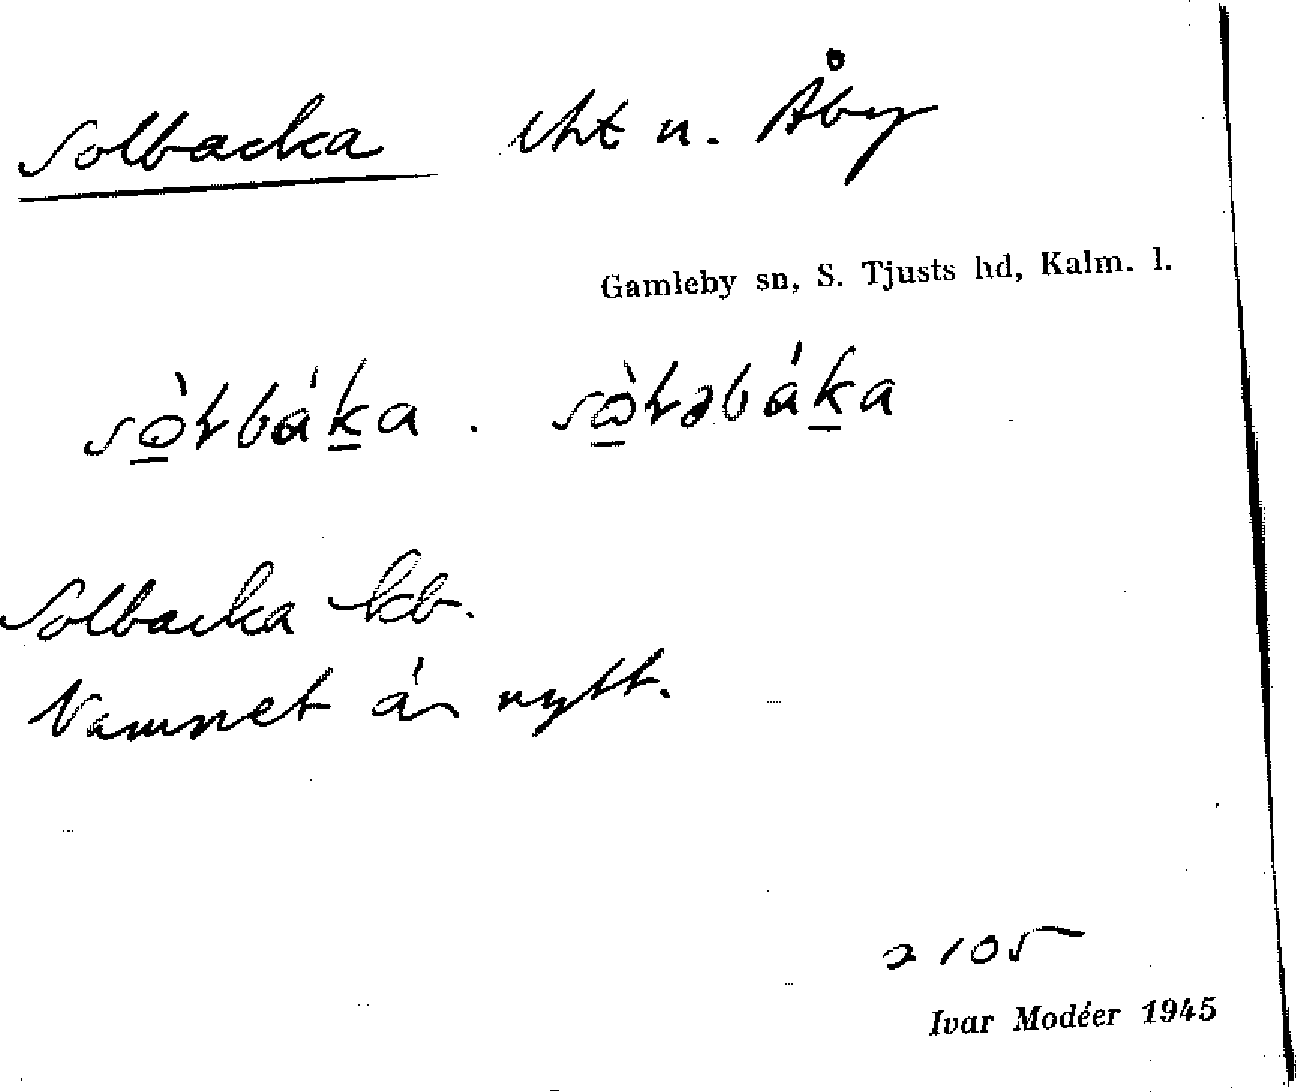 Solbacka lht u. Åby
Gamleby sn, S. Tjusts hd, Kalm. l.
Solbacka kb.
Namnet är nytt.
2105
Ivar Modéer 1945